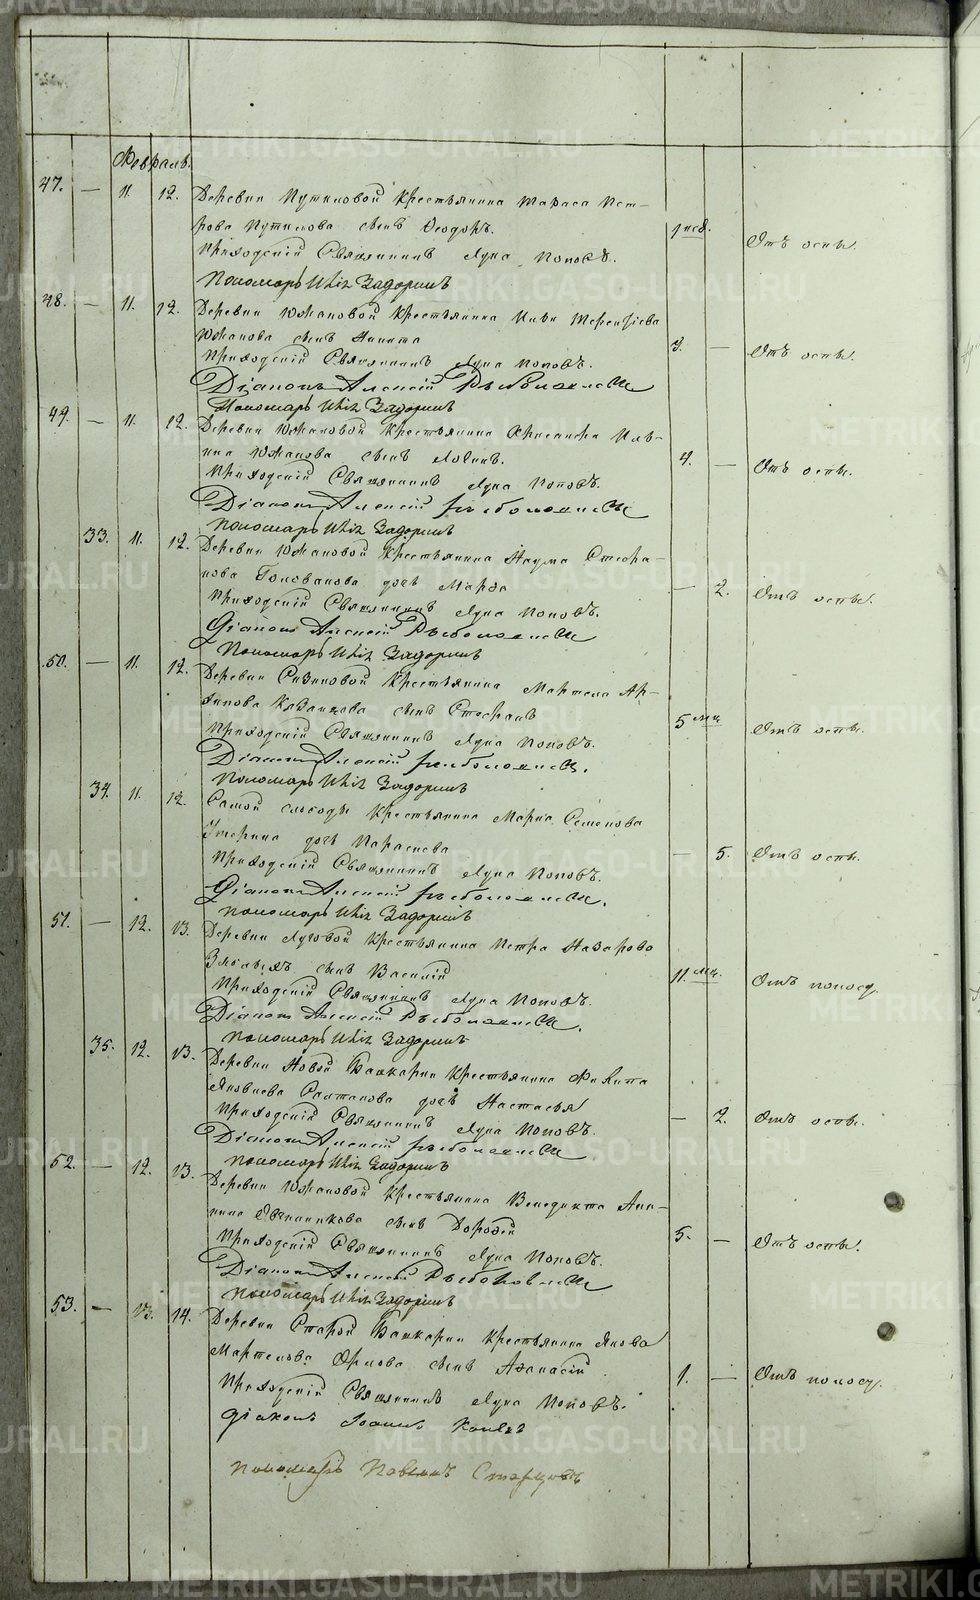 Февраль.
47. — 11. 12. Деревни Путиловой крестьянина Тараса Пет-
рова Путилова сынъ Ѳеодоръ. 1 нед. Отъ оспы.
Приходскій Священникъ Лука Поповъ.
Пономарь Задоринъ
48. — 11. 12. Деревни Южаковой крестьянина Ильи Терентіева
Южакова сынъ Никита 3. — Отъ оспы.
Приходскій Священникъ Лука Поповъ.
Діаконъ Алексій
Пономарь Задоринъ
49. — 11. 12. Деревни Южаковой крестьянина Хрисанфа Иль-
ина Южакова сынъ 4. — Отъ оспы.
Приходскій Священникъ Лука Поповъ.
Діаконъ Алексій
Пономарь Задоринъ
33. 11. 12. Деревни Южаковой крестьянина Наума Стефа-
нова Голованова дочь Марѳа — 2. Отъ оспы.
Приходскій Священникъ Лука Поповъ.
Діаконъ Алексій
Пономарь Задоринъ
50. — 11. 12. Деревни крестьянина Мартема Ар-
хипова Казанцова сынъ Стефанъ 5 мц. Отъ оспы.
Приходскій Священникъ Лука Поповъ.
Діаконъ Алексій
Пономарь Задоринъ
34. 11. 12. Самой слободы крестьянина Марка Семенова
Утюрина дочь — 5. Отъ оспы.
Приходскій Священникъ Лука Поповъ.
Діаконъ Алексій
Пономарь Задоринъ
51. — 12. 13. Деревни Луговой крестьянина Петра Назарова
сынъ Василій 11. мц. Отъ поносу.
Приходскій Священникъ Лука Поповъ.
Діаконъ Алексій
Пономарь Задоринъ
35. 12. 13. Деревни Новой Башкарки крестьянина Филипа
Яковлева Салтанова дочь Настасья — 2. Отъ оспы.
Приходскій Священникъ Лука Поповъ.
Діаконъ Алексій
Пономарь Задоринъ
52. — 12. 13. Деревни Южаковой крестьянина Венедикта Ани-
кина сынъ Дорофей 5. — Отъ оспы.
Приходскій Священникъ Лука Поповъ.
Діаконъ Алексій
Пономарь Задоринъ
53. — 13. 14. Деревни Старой Башкарки крестьянина Якова
Мартемова Орлова сынъ Аѳанасій 1. — Отъ поносу.
Приходскій Священникъ Лука Поповъ.
Діаконъ Іоаннъ
Пономарь Старцовъ
METRIKI.GASO-URAL.RU